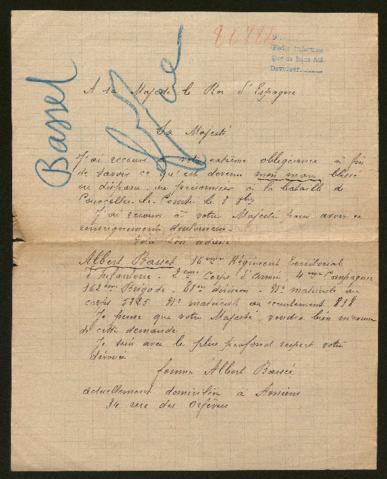 Bassel
A sa Majesté le Roi d'Espagne
Sa Majesté
J'ai recours à votre extrême obligeance à fin
de savoir ce qu'est devenu mon mari blessé
ou disparu ou prisonnier à la bataille de
Courcelles-le-Comte le 8 8bre
J'ai recours à votre Majesté pour avoir ce
renseignement
Voici son adresse
Albert Basset 16ème Régiment Territorial
d'Infanterie - 2ème Corps d'Armée 4ème Compagnie
162ème Brigade 81ème Division - No matricule du
corps 5725 No matricule au recrutement 818
Je pense que votre Majesté voudra bien
de cette demande.
Je suis avec le plus profond respect votre
dévouée
femme Albert Bassé
actuellement domiciliée à Amiens
24 rue des Orfèvres